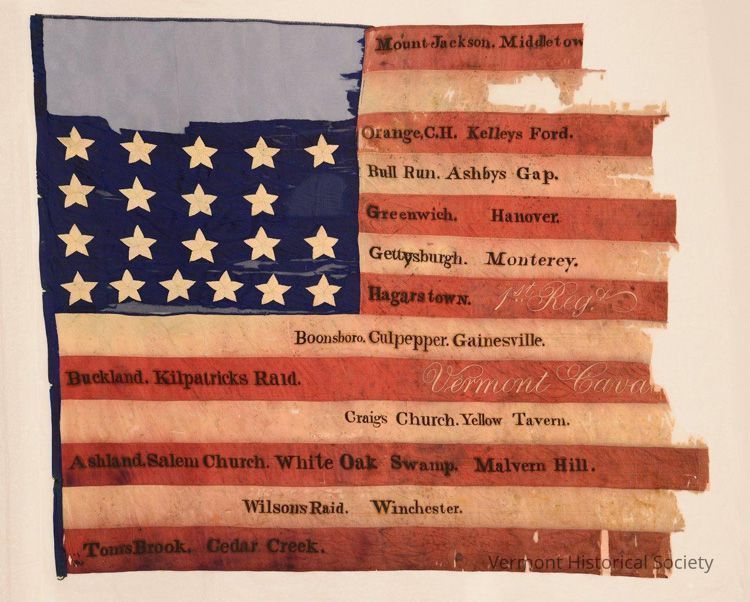 Mount Jackson. Middletow
Orange, C.H. Kelleys Ford.
Bull Run. Ashbys Gap.
Greenwich. Hanover.
Gettysburgh. Monterey.
Hagarstown. 1st Reg.t
Boonsboro. Culpepper. Gainesville.
Buckland. Kilpatricks Raid. Vermont Cava
Craigs Church. Yellow Tavern.
Ashland. Salem Church. White Oak Swamp. Malvern Hill.
Wilsons Raid. Winchester.
Toms Brook. Cedar Creek.
Vermont Historical Society